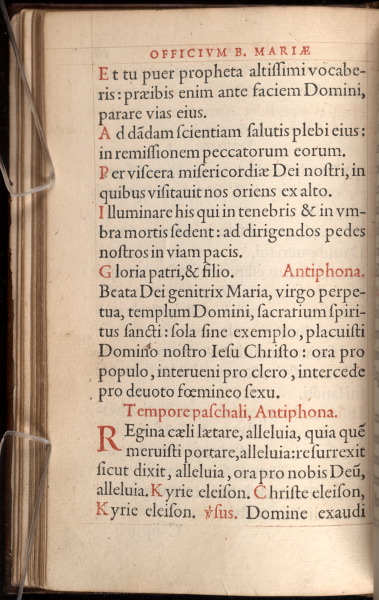 OFFICIVM B. MARIÆ
Et tu puer propheta altiſſimi vocabe-
ris: præibis enim ante faciem Domini,
parare vias eius.
Ad dādam ſcientiam ſalutis plebi eius:
in remiſſionem peccatorum eorum.
Per viſcera miſericordiæ Dei noſtri, in
quibus viſitauit nos oriens ex alto.
Illuminare his qui in tenebris & in vm-
bra mortis ſedent: ad dirigendos pedes
noſtros in viam pacis.
Gloria patri, & filio. Antiphona.
Beata Dei genitrix Maria, virgo perpe-
tua, templum Domini, ſacrarium ſpiri-
tus ſancti: ſola ſine exemplo, placuiſti
Domino noſtro Ieſu Chriſto: ora pro
populo, interueni pro clero, intercede
pro deuoto fœmineo ſexu.
Tempore paſchali, Antiphona.
REgina cæli lætare, alleluia, quia quē
meruiſti portare, alleluia: reſurrexit
ſicut dixit, alleluia, ora pro nobis Deū,
alleluia. Kyrie eleiſon. Chriſte eleiſon,
Kyrie eleiſon. ℣ſus. Domine exaudi